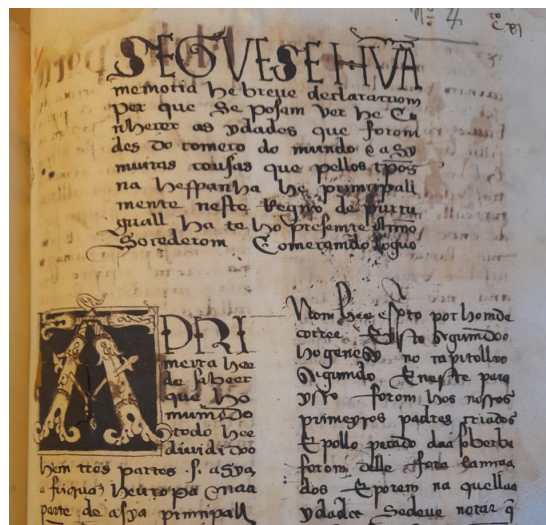 nº 4
SEGVESE HVÃ
memoria he breue declaraçuom
per que se posam ver he Co
nhecer as ydades que forom
des do começo do mundo e asy
muitas cousas que pellos tpõs
na hespanha he principall
mente neste Regno de purtu
guall ha te ho presemte Anno
Soçederom Começamdo loguo
A PRI
meira hee
de sabeer
que ho
mumdo
todo hee
diuidido
hem tres partes s. asya
afriqua heuropa
parte de asya primçipall
correr
ho genesy no capitollo
Segumdo E neste para
yso forom hos nosos
primeyros padres criados
E pollo pecado da soberba
forom delle fora lamça
dos E porem na quella
ydade Sedeue notar q̃